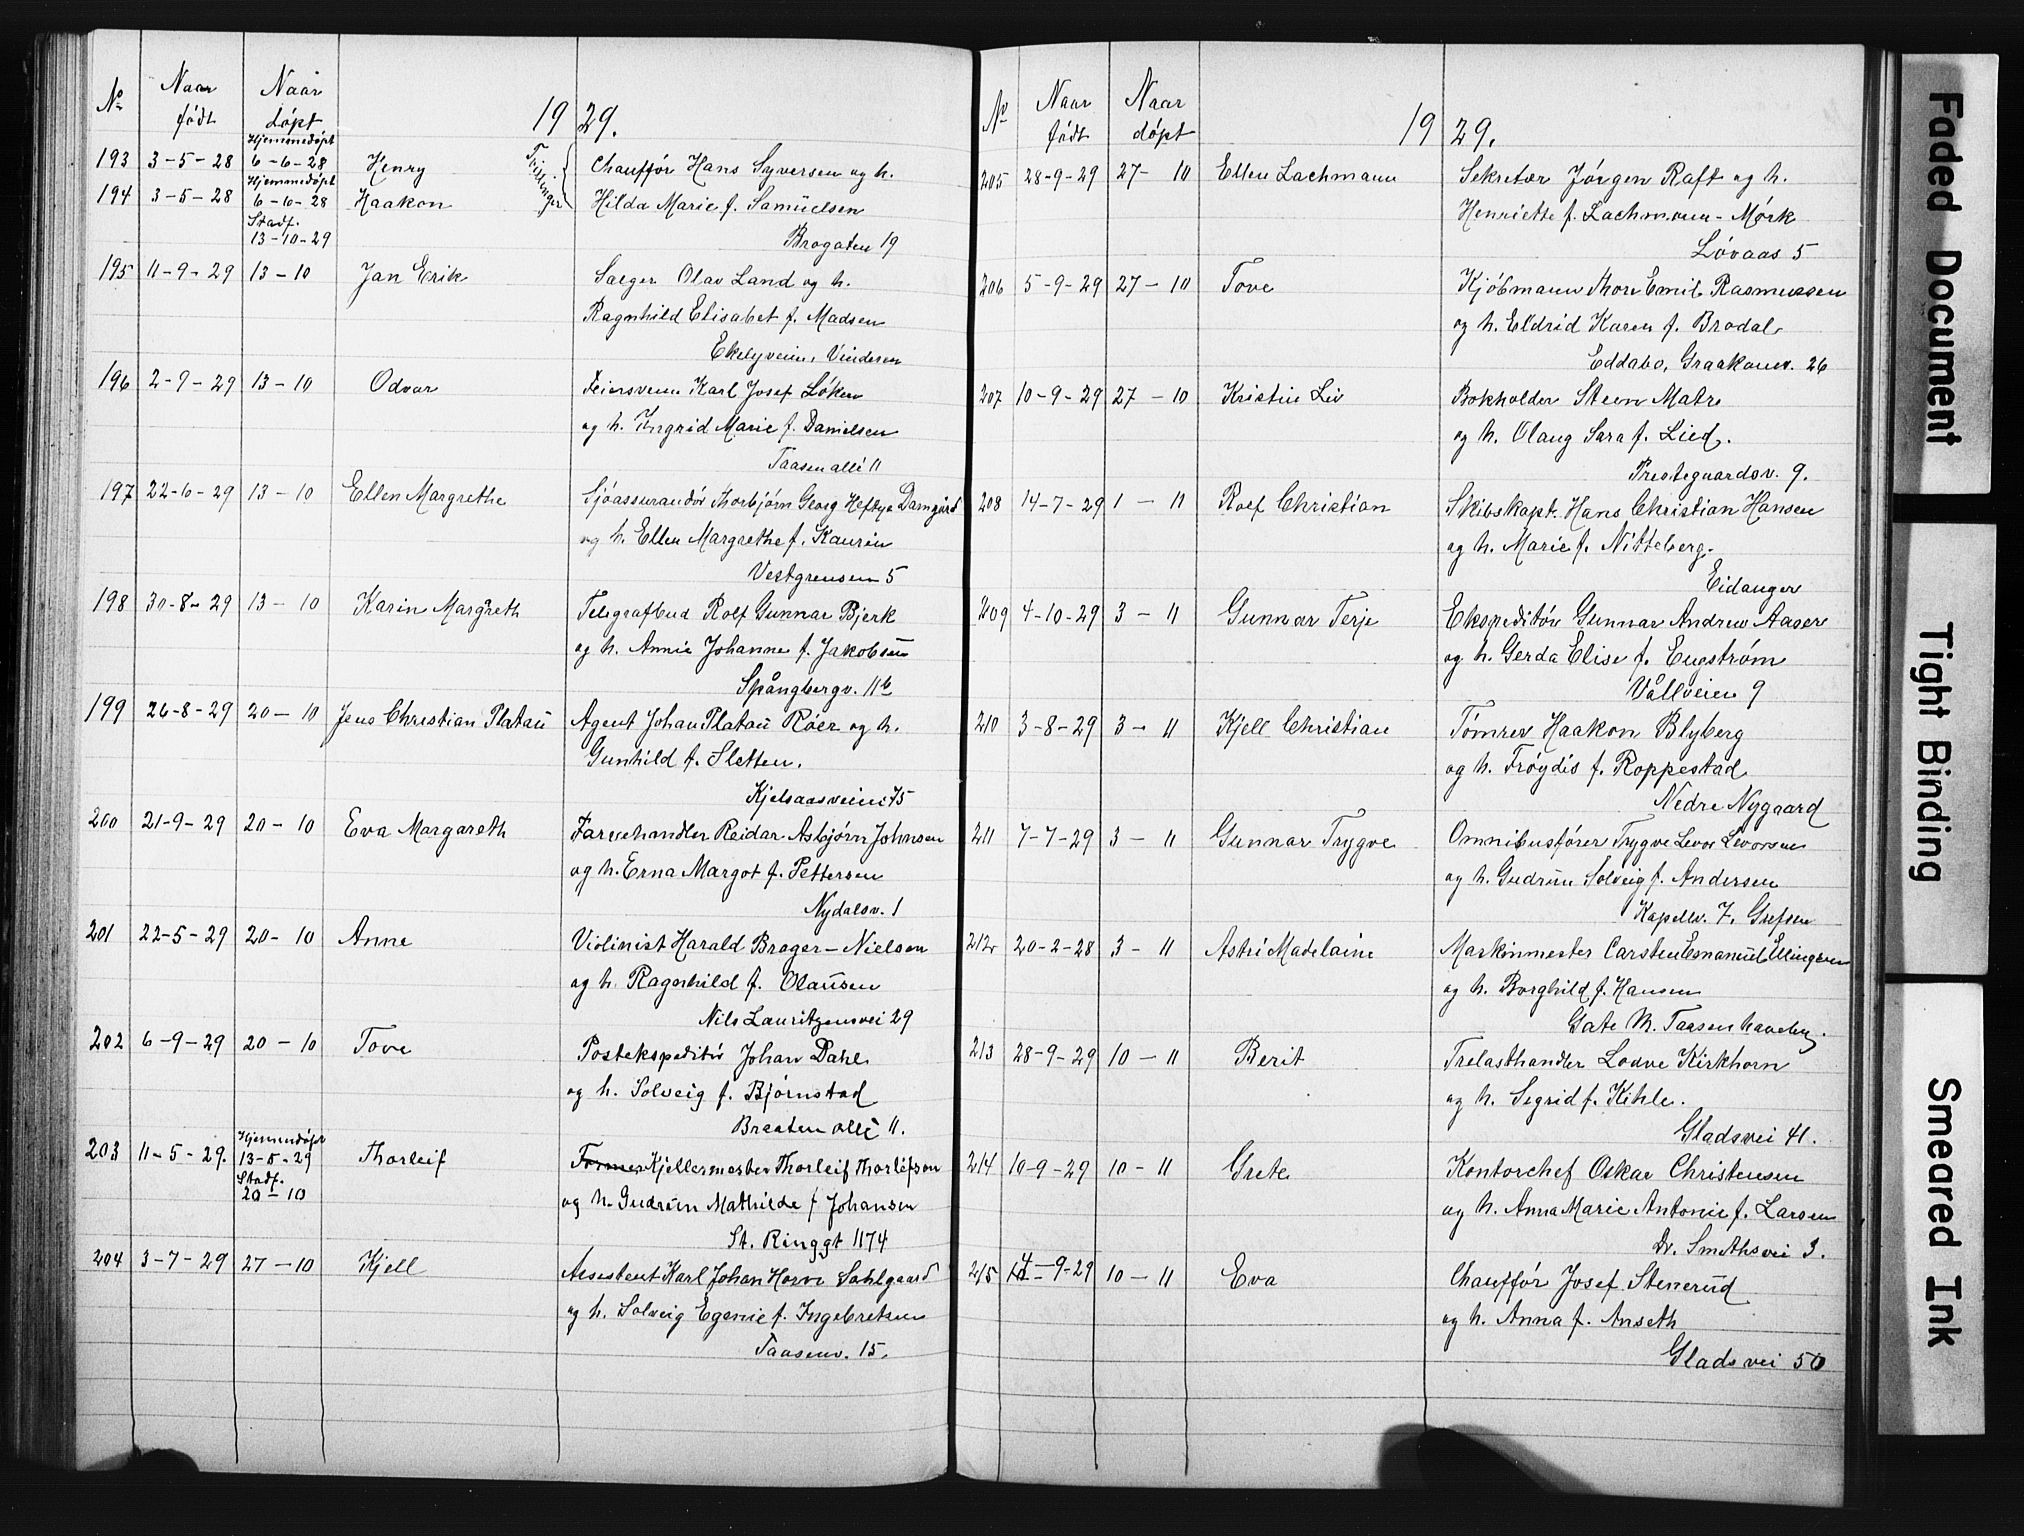 No Naar født Naar døpt 1929.
193 3-5-28 Hjemmedøpt 6-6-28 Henry Trillinger Chauffør Hans Syversen og h.
194 3-5-28 Hjemmedøpt 6-6-28 Haakon Hilda Marie f. Samuelsen
Stadf. 13-10-29 Brogaten 19
195 11-9-29 13-10 Jan Erik Olav Land og h.
Ragnhild Elisabet f. Madsen
Ekelyveien, Vinderen
196 2-9-29 13-10 Odvar Feiersvenn Karl Josef Løken
og h. Ingrid Marie f. Danielsen
Taasen allé 11
197 22-6-29 13-10 Ellen Margrethe Sjøassurandør Thorbjørn Georg Heftye Damgård
og h. Ellen Margrethe f. Kaurin
Vestgrensen 5
198 30-8-29 13-10 Karin Margreth Telegrafbud Rolf Gunnar Bjerk
og h. Annie Johanne f. Jakobsen
Spångbergv. 11b
199 26-8-29 20-10 Jens Christian Platou Agent Johan Platou Röer og h.
Gunhild f. Sletten.
Kjelsaasveien 75
200 21-9-29 20-10 Eva Margareth Farvehandler Reidar Asbjørn Johnsen
og h. Erna Margot f. Pettersen
Nydalsv. 1
201 22-5-29 20-10 Anne Violinist Harald Brager-Nielsen
og h. Ragnhild f. Olausen
Nils Lauritzensvei 29
202 6-9-29 20-10 Tove Postekspeditør Johan Dahl
og h. Solveig f. Bjørnstad
Braaten allé 11.
203 11-5-29. Hjemmedøpt 13-5-29 Stadf. 20-10 Thorleif Former Kjellermester Thorleif Thorleifson
og h. Gudrun Mathilde f Johansen
St. Ringgt 1174
204 3-7-29 27-10 Kjell Assistent Karl Johan Horve Sohlgaard
og h. Solveig Egenie f. Ingebretsen
Taasenv. 15.
No Naar født Naar døpt 1929.
205 28-9-29 27-10 Ellen Lachmann Sekretær Jørgen Raft og h.
Henriette f. Lachmann-Mørk
Løvaas 5
206 5-9-29 27-10 Tove Kjøbmann Thore Emil Rasmussen
og h. Eldrid Karen f. Brodal
Eddabo, Graakamv. 26
207 10-9-29 27-10 Kristin Liv Bokholder Steen Matre
og h. Olaug Sara f. Lied.
Prestegaardsv. 9.
208 14-7-29 1-11 Rolf Christian Skibskapt. Hans Christian Hansen
og h. Marie f. Nitteberg.
Eidanger
209 4-10-29 3-11 Gunnar Terje Ekspeditør Gunnar Andrew Aaser
og h. Gerda Elise f. Engstrøm
Vållveien 9
210 3-8-29 3-11 Kjell Christian Tømrer Haakon Blyberg
og h. Frøydis f. Roppestad
Nedre Nygaard
211 7-7-29 3-11 Gunnar Trygve Omnibusfører Trygve Levor Levorsen
og h. Gudrun Solveig f. Andersen
Kapellv. 7, Grefsen
212 20-2-28 3-11 Astri Madelaine Maskinmester Carsten Emanuel Ellingsen
og h. Borghild f. Hansen
Gate M. Taasen haveby.
213 28-9-29 10-11 Berit Trelasthandler Lodve Kirkhorn
og h. Sigrid f. Kihle.
Gladsvei 41.
214 19-9-29 10-11 Grete Kontorchef Oskar Christensen
og h. Anna Marie Antonie f. Larsen
Dr. Smithsvei 3.
215 4-9-29 10-11 Eva Chauffør Josef Stenerud
og h. Anna f. Anseth
Gladsvei 50
Faded Document
Tight Binding
Smeared Ink